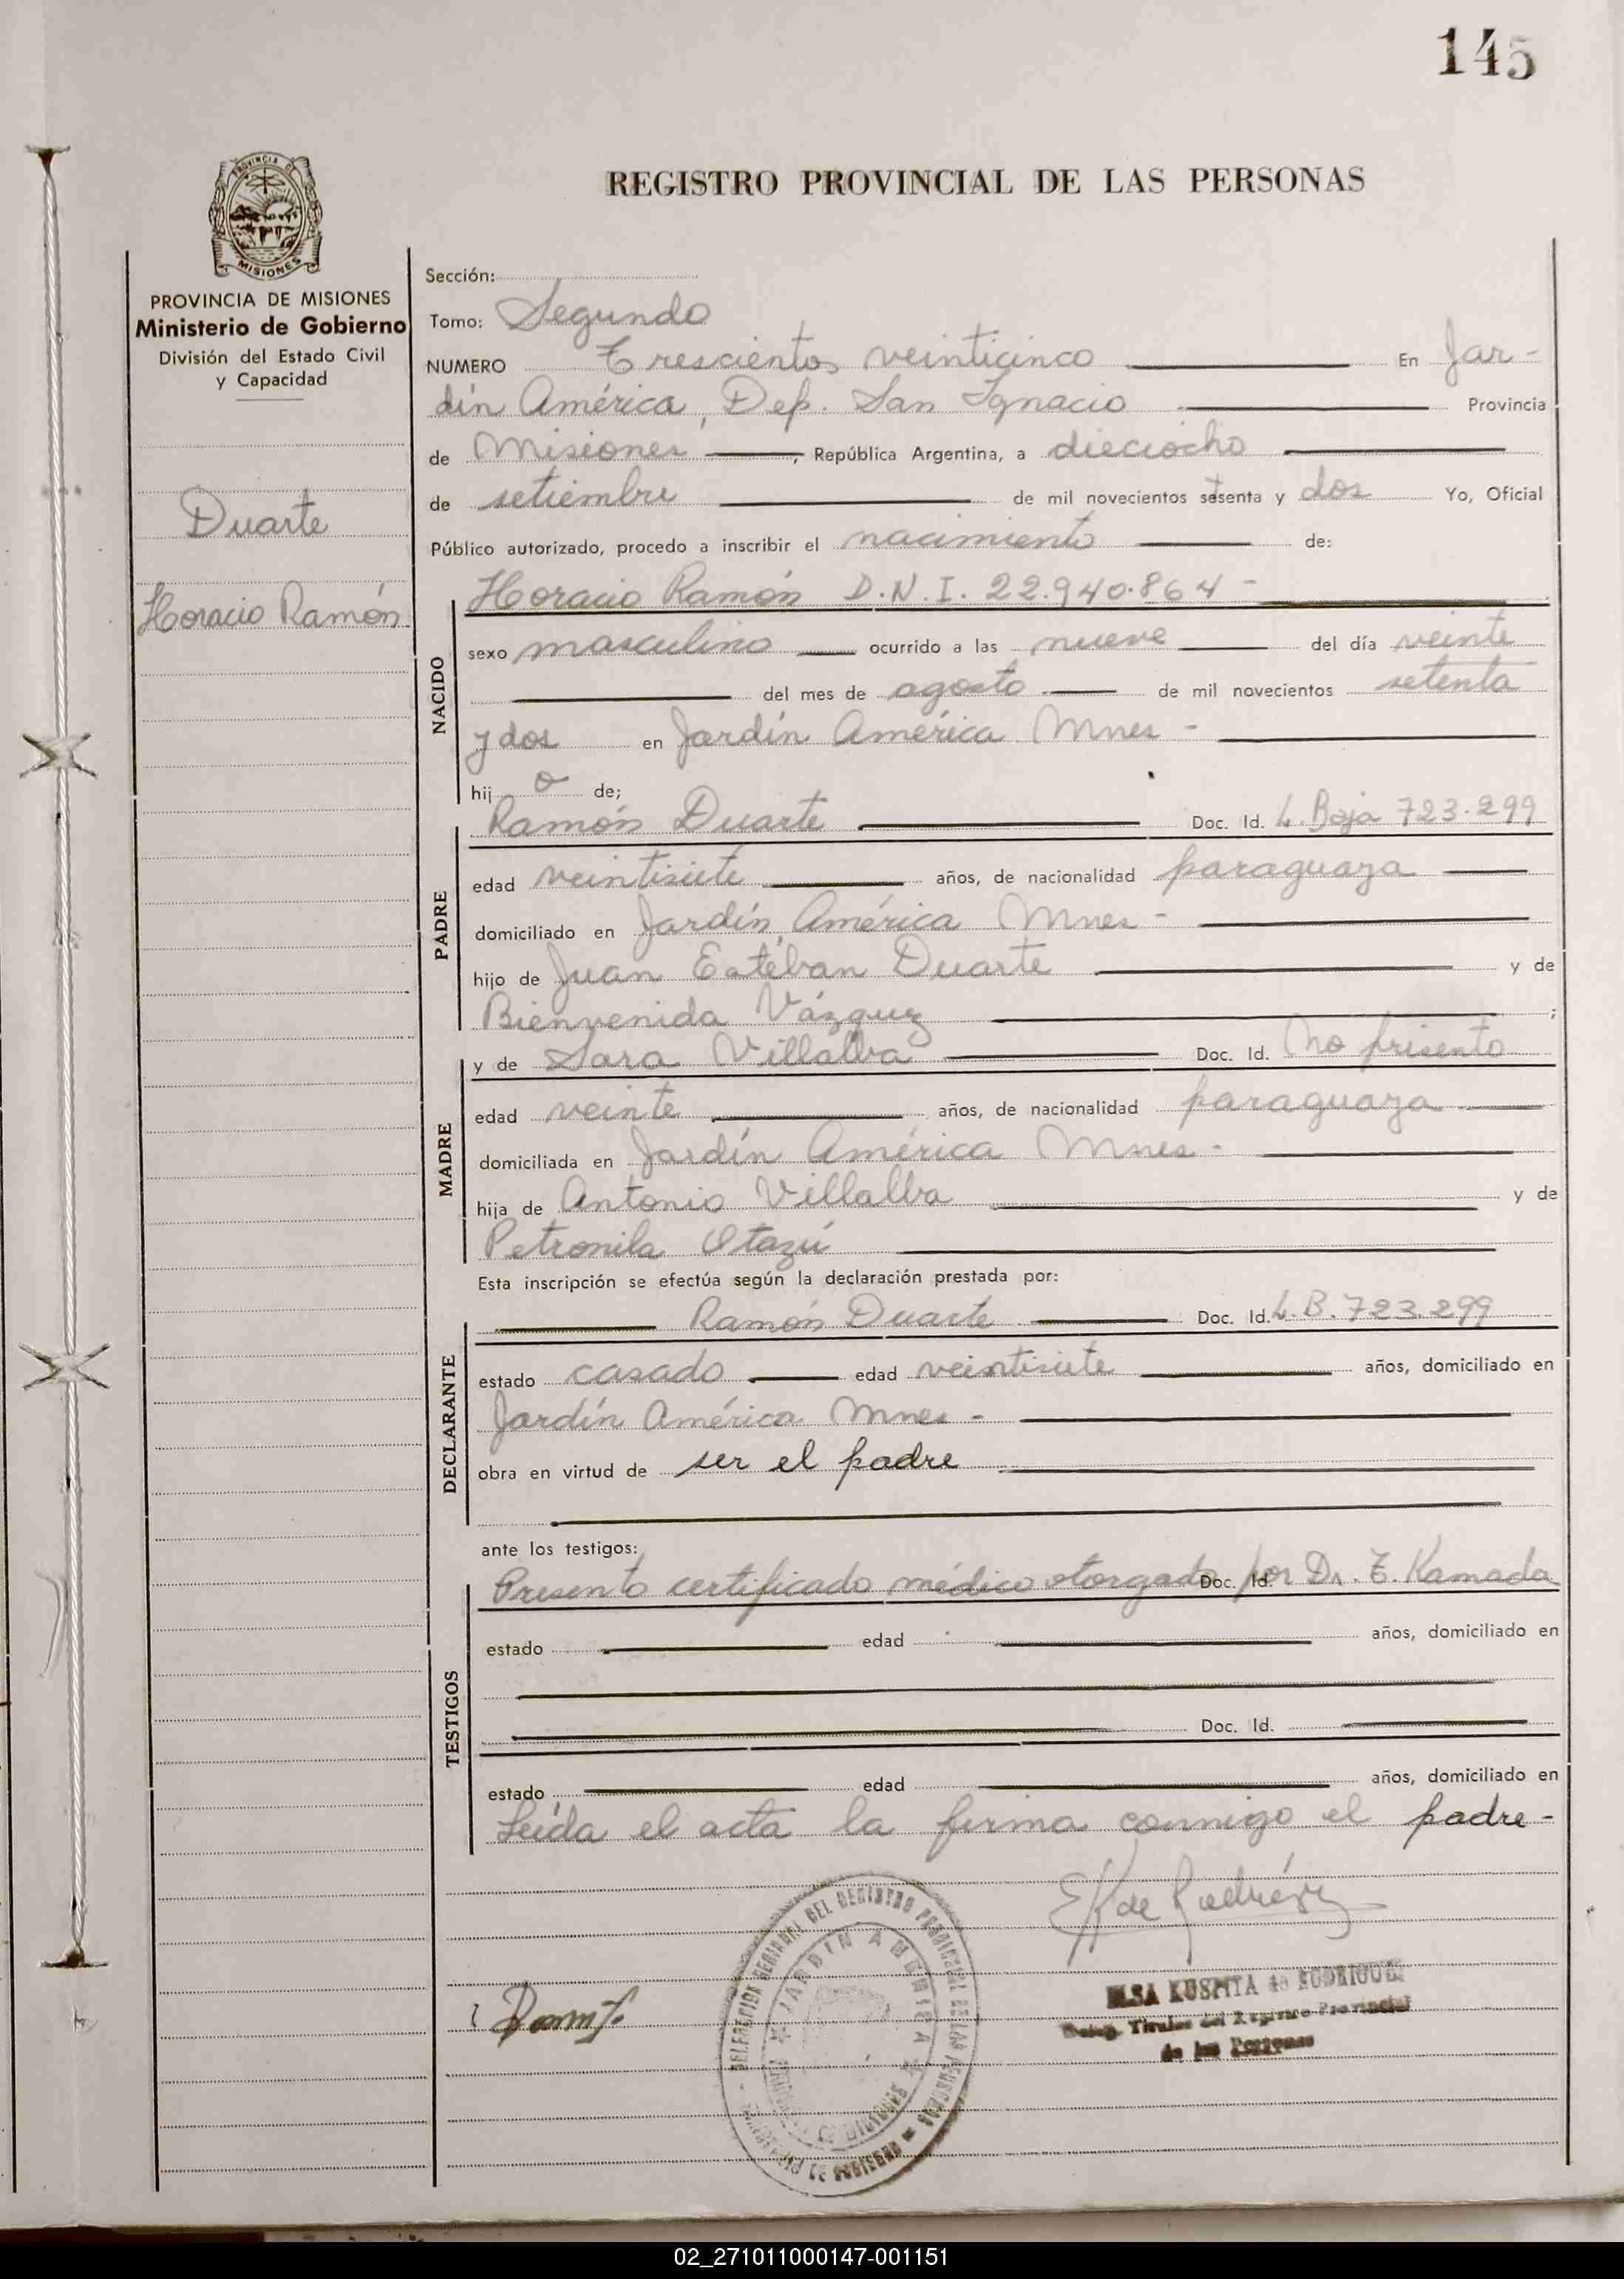 145
REGISTRO PROVINCIAL DE LAS PERSONAS
PROVINCIA DE MISIONES
MISIONES
PROVINCIA DE MISIONES
Ministerio de Gobierno
División del Estado Civil
y Capacidad
Duarte
Horacio Ramón
Sección:
Tomo: Segundo
NUMERO Trescientos veinticinco En Jar-
dín América, Dep. San Ignacio Provincia
de Misiones, República Argentina, a dieciocho
de setiembre de mil novecientos setenta y dos Yo, Oficial
Público autorizado, procedo a inscribir el nacimiento de:
NACIDO
Horacio Ramón D.N.I. 22.940.864-
sexo masculino ocurrido a las nueve del día veinte
del mes de agosto de mil novecientos setenta
y dos en Jardín América Mnes-
hij o de;
PADRE
Ramón Duarte Doc. Id. L. Baja 723.299
edad veintisiete años, de nacionalidad paraguaya
domiciliado en Jardín América Mnes-
hijo de Juan Estéban Duarte y de
Bienvenida Vázquez ;
MADRE
y de Sara Villalba Doc. Id. No presento
edad veinte años, de nacionalidad paraguaya
domiciliada en Jardín América Mnes-
hija de Antonio Villalba y de
Petronila Otazú
Esta inscripción se efectúa según la declaración prestada por:
DECLARANTE
Ramón Duarte Doc. Id. L.B. 723.299
estado casado edad veintisiete años, domiciliado en
Jardín América Mnes-
obra en virtud de ser el padre
ante los testigos:
TESTIGOS
Presentó certificado médico otorgado Doc. Id. por Dr. T. Kamada
estado edad años, domiciliado en
Doc. Id.
estado edad años, domiciliado en
Leída el acta la firma conmigo el padre-
DELEGACION DEL REGISTRO PROVINCIAL DE LAS PERSONAS
JARDIN AMERICA
MISIONES
ELSA de RODRIGUEZ
Deleg. Titular del Registro Provincial
de las Personas
02_271011000147-001151